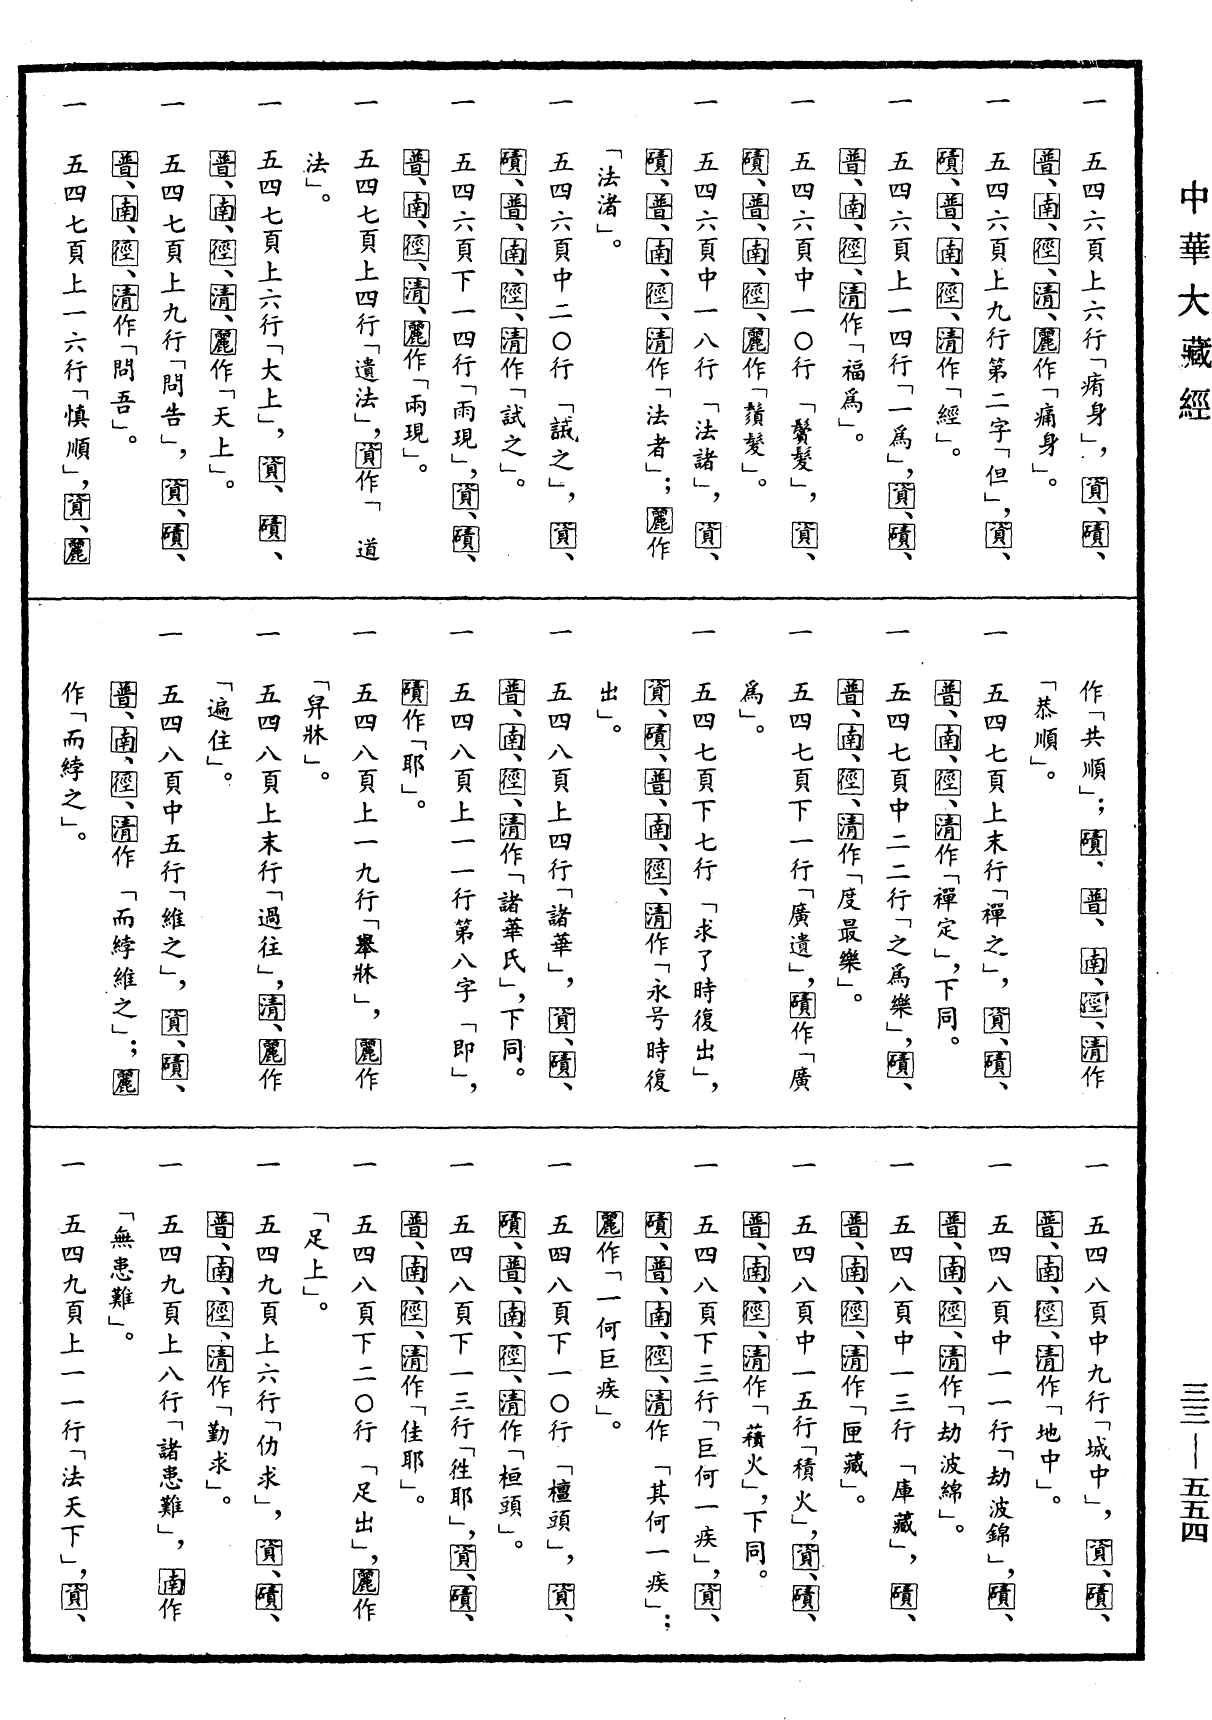 中華大藏經
一　五四六頁上六行「痏身」，資、磧、
普、南、徑、清、麗作「痛身」。
一　五四六頁上九行第二字「但」，資、
磧、普、南、徑、清作「經」。
一　五四六頁上一四行「一爲」，資、磧、
普、南、徑、清作「福爲」。
一　五四六頁中一〇行「鬢髮」，資、
磧、普、南、徑、麗作「鬚髮」。
一　五四六頁中一八行「法諸」，資、
磧、普、南、徑、清作「法者」；麗作
「法渚」。
一　五四六頁中二〇行「誡之」，資、
磧、普、南、徑、清作「試之」。
一　五四六頁下一四行「雨現」，資、磧、
普、南、徑、清、麗作「兩現」。
一　五四七頁上四行「遺法」，資作「道
法」。
一　五四七頁上六行「大上」，資、磧、
普、南、徑、清、麗作「天上」。
一　五四七頁上九行「問告」，資、磧、
普、南、徑、清作「問吾」。
一　五四七頁上一六行「慎順」，資、麗
作「共順」；磧、普、南、徑、清作
「恭順」。
一　五四七頁上末行「禪之」，資、磧、
普、南、徑、清作「禪定」，下同。
一　五四七頁中二二行「之爲樂」，磧、
普、南、徑、清作「度最樂」。
一　五四七頁下一行「廣遺」，磧作「廣
爲」。
一　五四七頁下七行「求了時復出」，
資、磧、普、南、徑、清作「永号時復
出」。
一　五四八頁上四行「諸華」，資、磧、
普、南、徑、清作「諸華氏」，下同。
一　五四八頁上一一行第八字「即」，
磧作「耶」。
一　五四八頁上一九行「舉牀」，麗作
「舁牀」。
一　五四八頁上末行「過往」，清、麗作
「遍住」。
一　五四八頁中五行「維之」，資、磧、
普、南、徑、清作「而綍維之」；麗
作「而綍之」。
一　五四八頁中九行「城中」，資、磧、
普、南、徑、清作「地中」。
一　五四八頁中一一行「劫波錦」，磧、
普、南、徑、清作「劫波綿」。
一　五四八頁中一三行「庫藏」，磧、
普、南、徑、清作「匣藏」。
一　五四八頁中一五行「積火」，資、磧、
普、南、徑、清作「𧂐火」，下同。
一　五四八頁下三行「巨何一疾」，資、
磧、普、南、徑、清作「其何一疾」；
麗作「一何巨疾」。
一　五四八頁下一〇行「檀頭」，資、
磧、普、南、徑、清作「桓頭」。
一　五四八頁下一三行「徃耶」，資、磧、
普、南、徑、清作「佳耶」。
一　五四八頁下二〇行「足出」，麗作
「足上」。
一　五四九頁上六行「仂求」，資、磧、
普、南、徑、清作「勤求」。
一　五四九頁上八行「諸患難」，南作
「無患難」。
一　五四九頁上一一行「法天下」，資、
三三—五五四